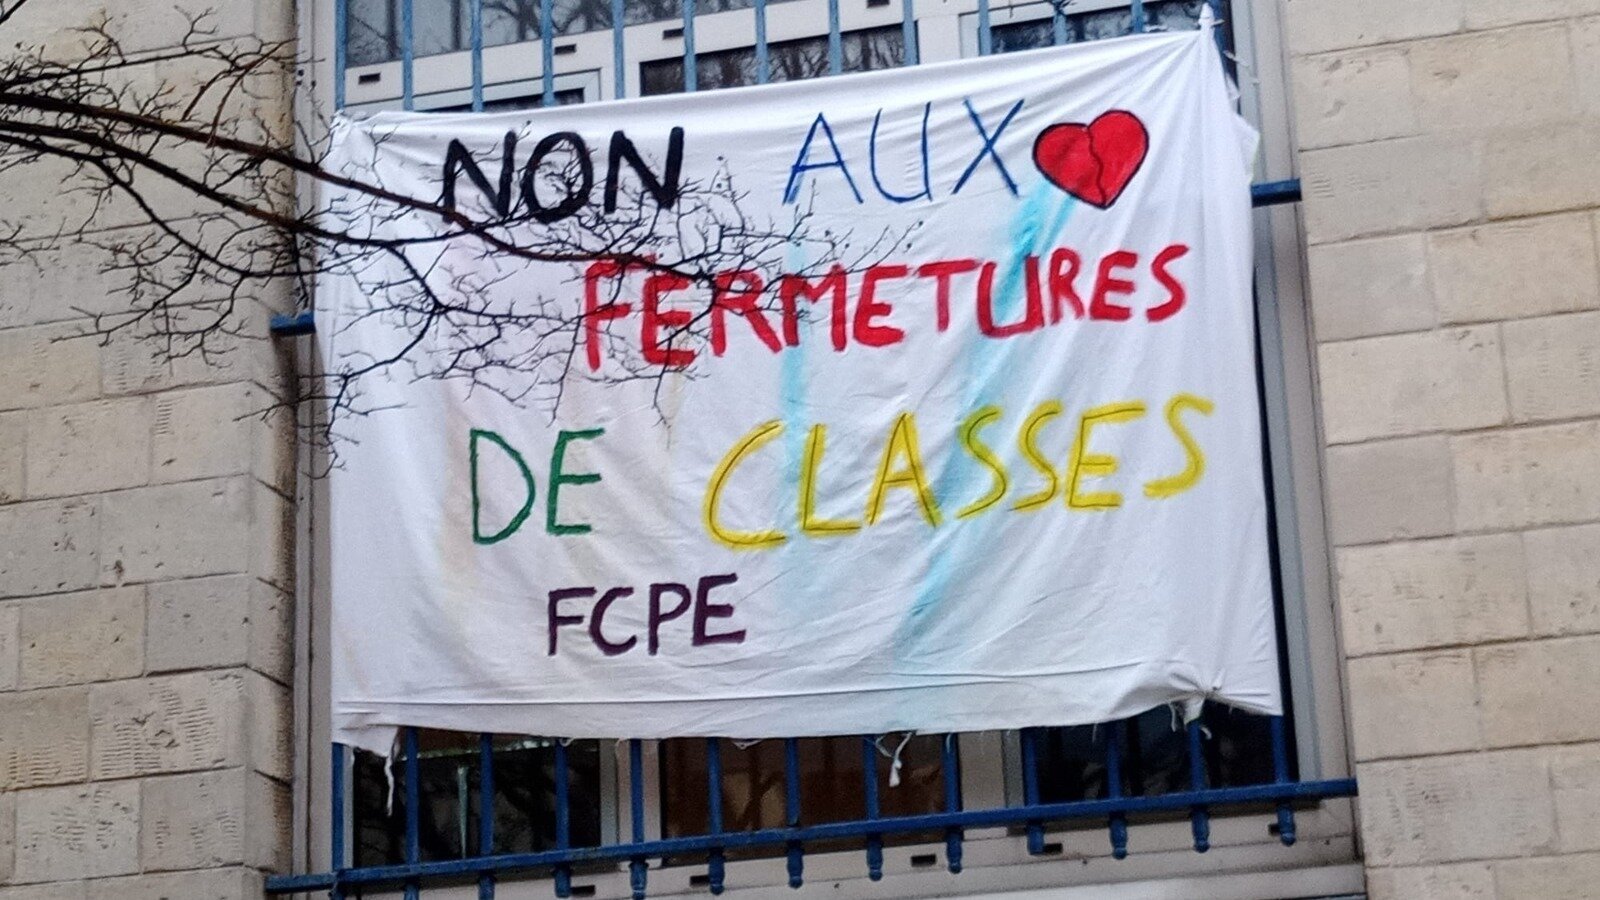 NON AUX
FERMETURES
DE CLASSES
FCPE